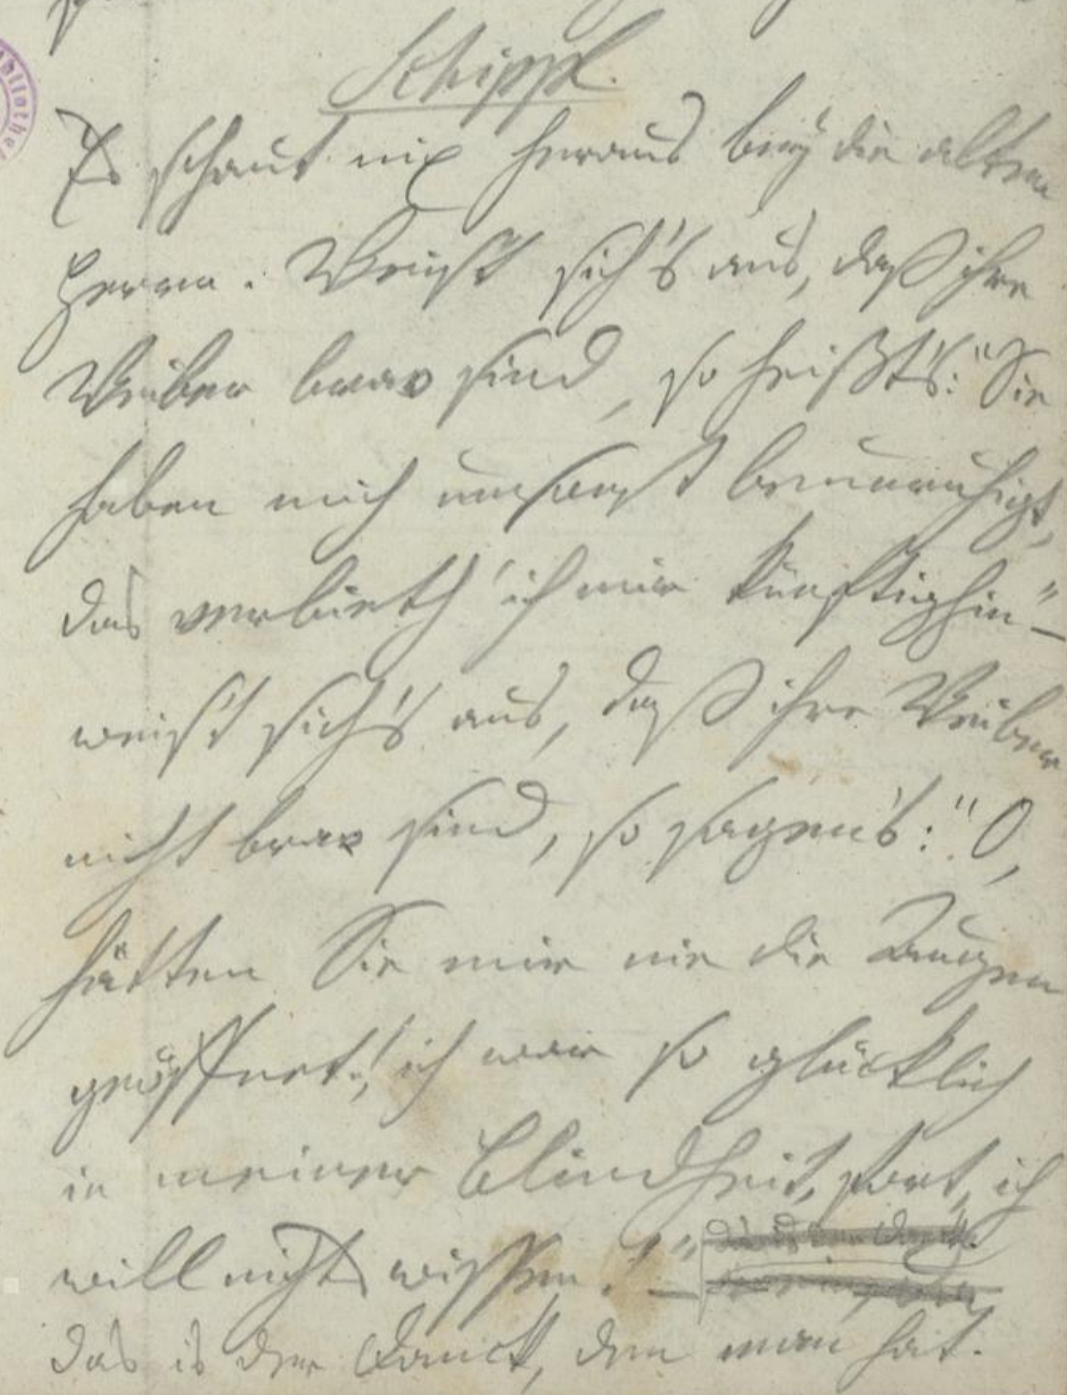 Schippl.
Es schaut nix heraus bey die alten
Herrn. Weist sich's aus, daß ihre
Weiber brav sind, so heißt's: "Sie
haben mich umsonst beunruhigt,
das verbieth' ich mir künftighin" –
weist sich's aus, daß ihre Weiber
nicht brav sind, so sagen's: "O,
hätten Sie mir nie die Augen
geöffnet! ich war so glücklich
in meiner Blindheit, fort, ich
will nichts wissen!" –
das is der Danck, den man hat.